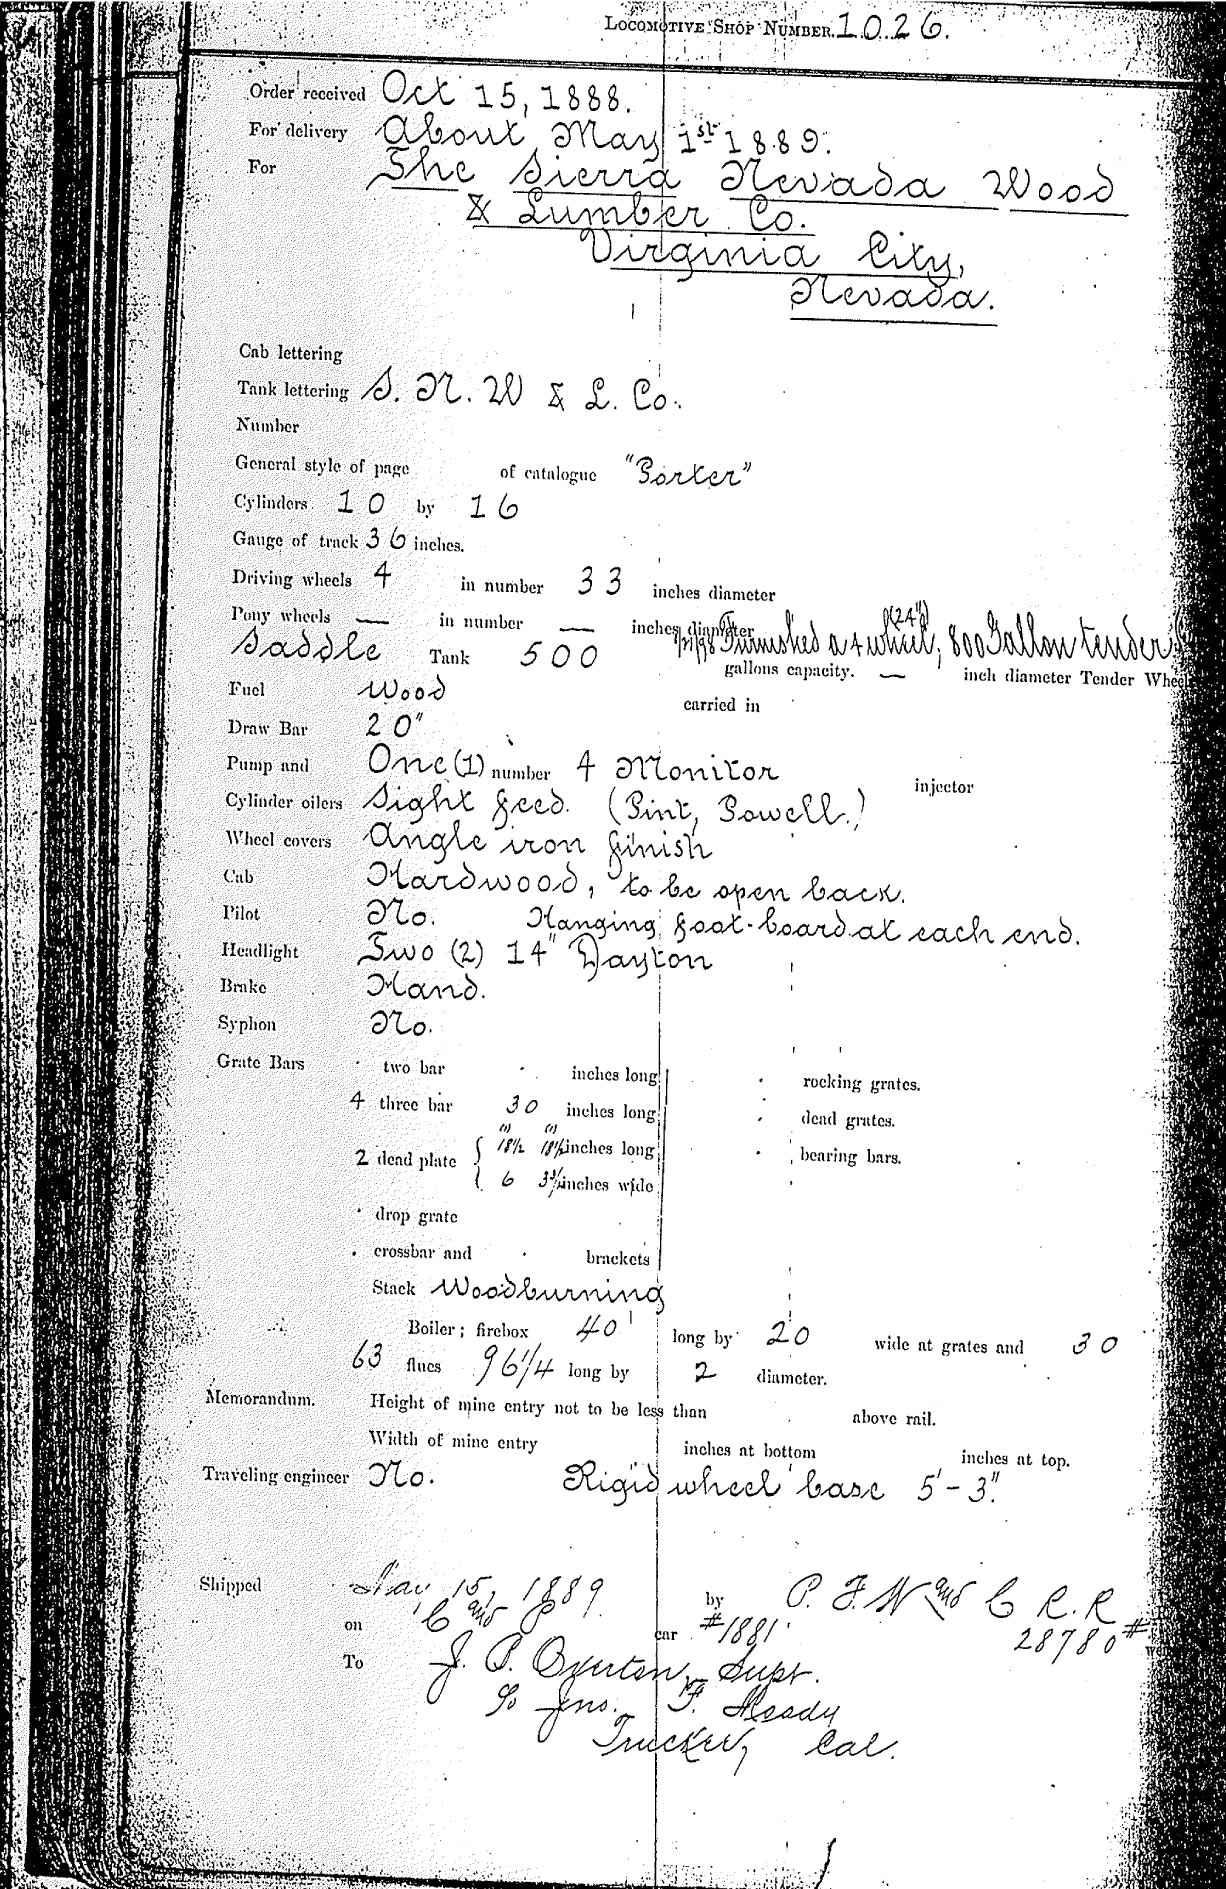 LOCOMOTIVE SHOP NUMBER. 1026.
Order received Oct 15, 1888.
For delivery About May 1st 1889.
For The Sierra Nevada Wood
& Lumber Co.
Virginia City,
Nevada.
Cab lettering
Tank lettering S. N. W & L. Co.
Number
General style of page of catalogue "Porter"
Cylinders 10 by 16
Gauge of track 36 inches.
Driving wheels 4 in number 33 inches diameter
Pony wheels — in number — inches diameter
Furnished a 4 wheel, (24") 800 Gallon tender
Saddle Tank 500 gallons capacity. — inch diameter Tender Wheels
Fuel Wood carried in
Draw Bar 20"
Pump and One (1) number 4 Monitor injector
Cylinder oilers Sight feed. (Pint, Powell.)
Wheel covers Angle iron finish
Cab Hardwood, to be open back.
Pilot No. Hanging foot-board at each end.
Headlight Two (2) 14" Dayton
Brake Hand.
Syphon No.
Grate Bars two bar inches long rocking grates.
4 three bar 30 inches long dead grates.
2 dead plate { (1) 18 1/2 (1) 18 1/2 inches long bearing bars.
6 3 3/4 inches wide
drop grate
crossbar and brackets
Stack Woodburning
Boiler; firebox 40 long by 20 wide at grates and 30
63 flues 96 1/4 long by 2 diameter.
Memorandum. Height of mine entry not to be less than above rail.
Width of mine entry inches at bottom inches at top.
Traveling engineer No. Rigid wheel base 5'-3".
Shipped 15, 1889 by P. F. W and C R.R
on C and P car #1881 28780#
To J. P. Overton, Supt.
c/o Jno. F. Moody
Truckee, Cal.